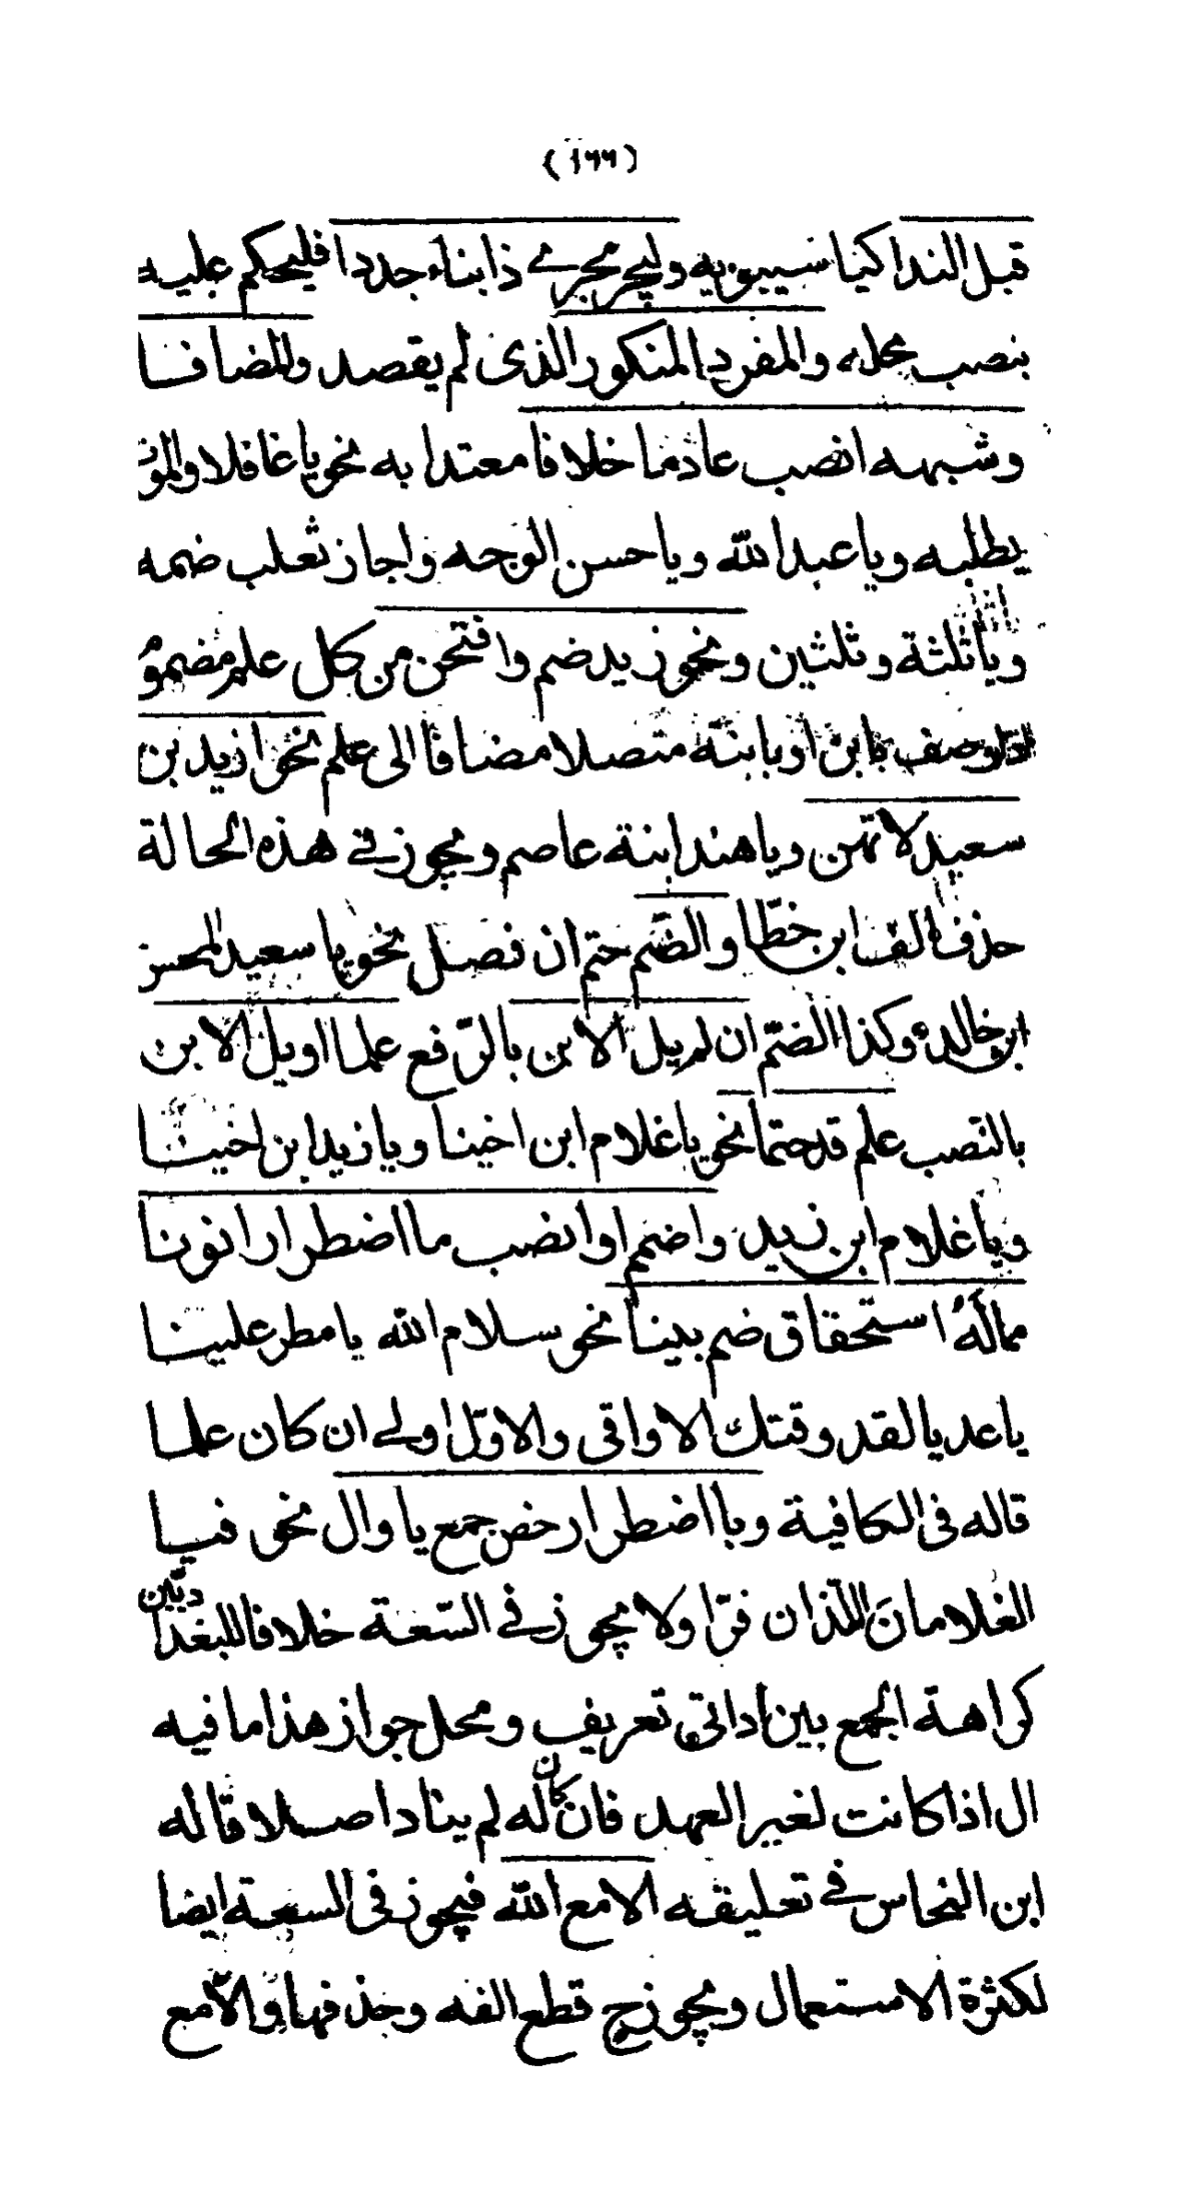 (١٦٦)
قبل الندا كيا سيبويه وليجر مجرى ذا بناء جددا فليحكم عليه
بنصب محله والمفرد المنكور الذى لم يقصد والمضافا
وشبهه انصب عادما خلافا معتدا به نحو يا غافلا والموت
يطلبه ويا عبد الله ويا حسن الوجه واجاز ثعلب ضمه
ويا ثلثة وثلثين ونحو زيد ضم وافتحن من كل علم مضموم
اذا وصف بابن او بابنة متصلا مضافا الى علم نحو ازيد بن
سعيد لا تهن ويا هند ابنة عاصم ويجوز فى هذه الحالة
حذف الف ابن خطا والضم حتم ان فصل نحو يا سعيد المحسن
ابن خالد وكذا الضم ان لم يل الابن بالرفع علما او يل الابن
بالنصب علم قد حتما نحو يا غلام ابن اخينا ويا زيد ابن اخينا
ويا غلام ابن زيد واضمم او انصب ما اضطرارا نونا
مما لَهُ استحقاق ضم بينا نحو سلام الله يا مطر علينا
يا عديا لقد وقتك الاواقى والاول اولى ان كان علما
قاله فى الكافية وباضطرار خص جمع يا وال نحو فيا
الغلامان اللذان فرا ولا يجوز فى السعة خلافا للبغداديين
كراهة الجمع بين اداتى تعريف ومحل جواز هذا ما فيه
ال اذا كانت لغير العهد فان كان له لم يناد اصلا قاله
ابن النحاس فى تعليقه الا مع الله فيجوز فى السعة ايضا
لكثرة الاستعمال ويجوز ح قطع الفه وحذفها والا مع